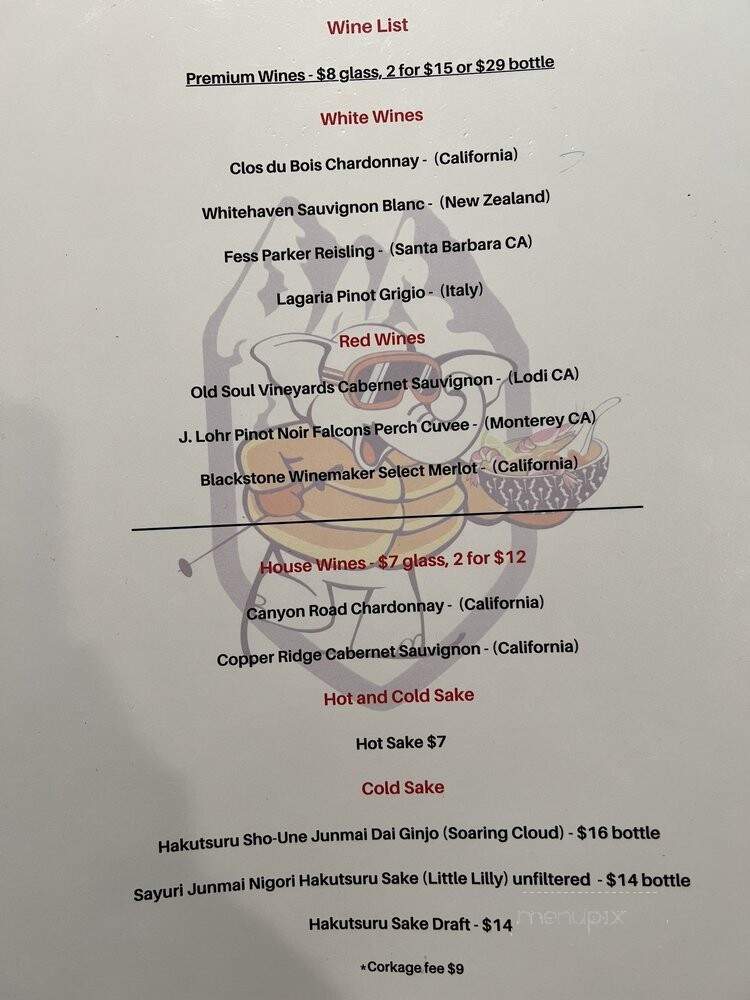 Wine List
Premium Wines - $8 glass, 2 for $15 or $29 bottle
White Wines
Clos du Bois Chardonnay - (California)
Whitehaven Sauvignon Blanc - (New Zealand)
Fess Parker Reisling - (Santa Barbara CA)
Lagaria Pinot Grigio - (Italy)
Red Wines
Old Soul Vineyards Cabernet Sauvignon - (Lodi CA)
J. Lohr Pinot Noir Falcons Perch Cuvee - (Monterey CA)
Blackstone Winemaker Select Merlot - (California)
House Wines - $7 glass, 2 for $12
Canyon Road Chardonnay - (California)
Copper Ridge Cabernet Sauvignon - (California)
Hot and Cold Sake
Hot Sake $7
Cold Sake
Hakutsuru Sho-Une Junmai Dai Ginjo (Soaring Cloud) - $16 bottle
Sayuri Junmai Nigori Hakutsuru Sake (Little Lilly) unfiltered - $14 bottle
Hakutsuru Sake Draft - $14
menupix
*Corkage fee $9